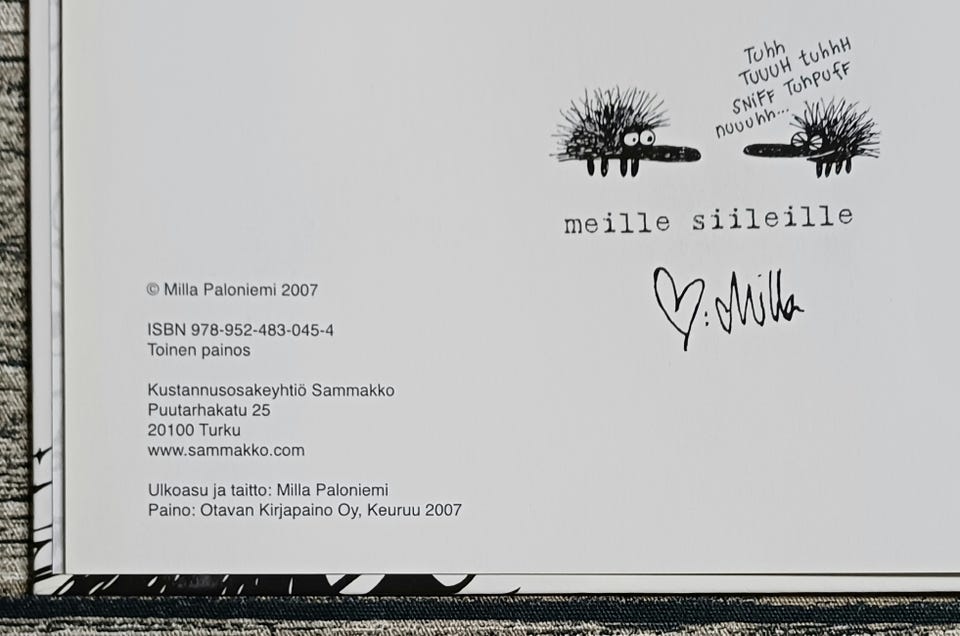 Tuhh
TUUUH tuhhH
SNiFF TuhpuFF
nuuuhh...
meille siileille
♡: Milla
© Milla Paloniemi 2007
ISBN 978-952-483-045-4
Toinen painos
Kustannusosakeyhtiö Sammakko
Puutarhakatu 25
20100 Turku
www.sammakko.com
Ulkoasu ja taitto: Milla Paloniemi
Paino: Otavan Kirjapaino Oy, Keuruu 2007